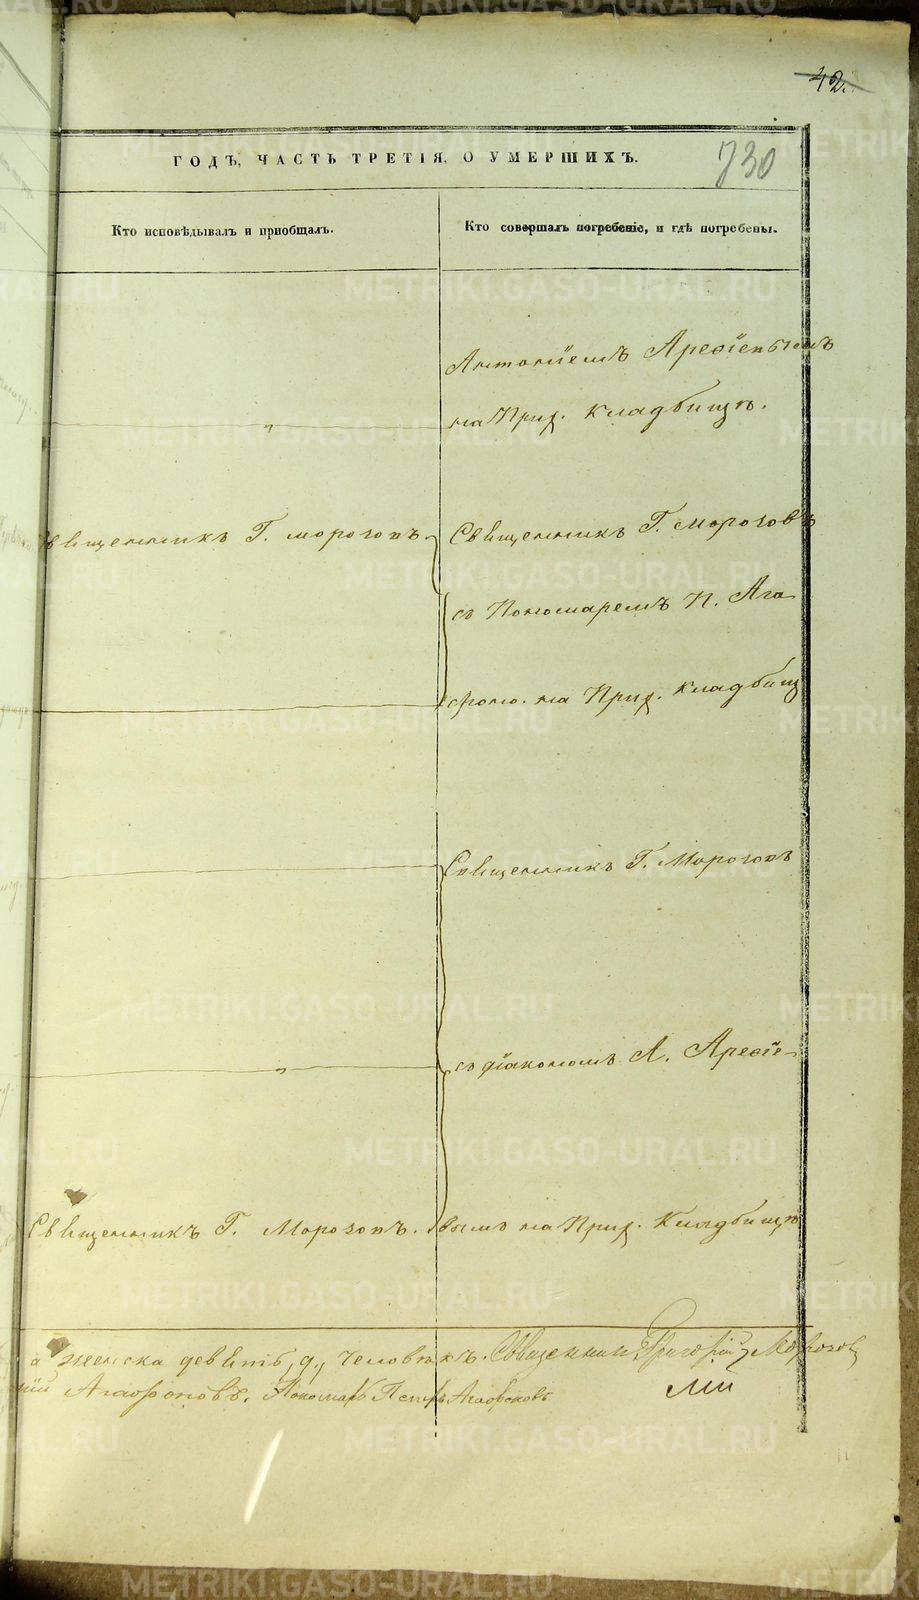 42.
730
ГОДЪ, ЧАСТЬ ТРЕТІЯ, О УМЕРШИХЪ.
Кто исповѣдывалъ и пріобщалъ.
Кто совершалъ погребеніе, и гдѣ погребены.
Антоніемъ Арефіевымъ
на Прид. кладбищѣ.
Священникъ Г. Морозовъ.
Священникъ Г. Морозовъ
съ Пономаремъ П. Ага-
фоно. на Прид. кладбищ
Священникъ Г. Морозовъ
съ діакономъ А. Арефіе-
Священникъ Г. Морозовъ.
вымъ на Прид. Кладбищѣ
женска девять, 9, человѣкъ. Священникъ Григорій Морозов
ній Агафоновъ. Пономарь Петръ Агафоновъ
METRIKI.GASO-URAL.RU